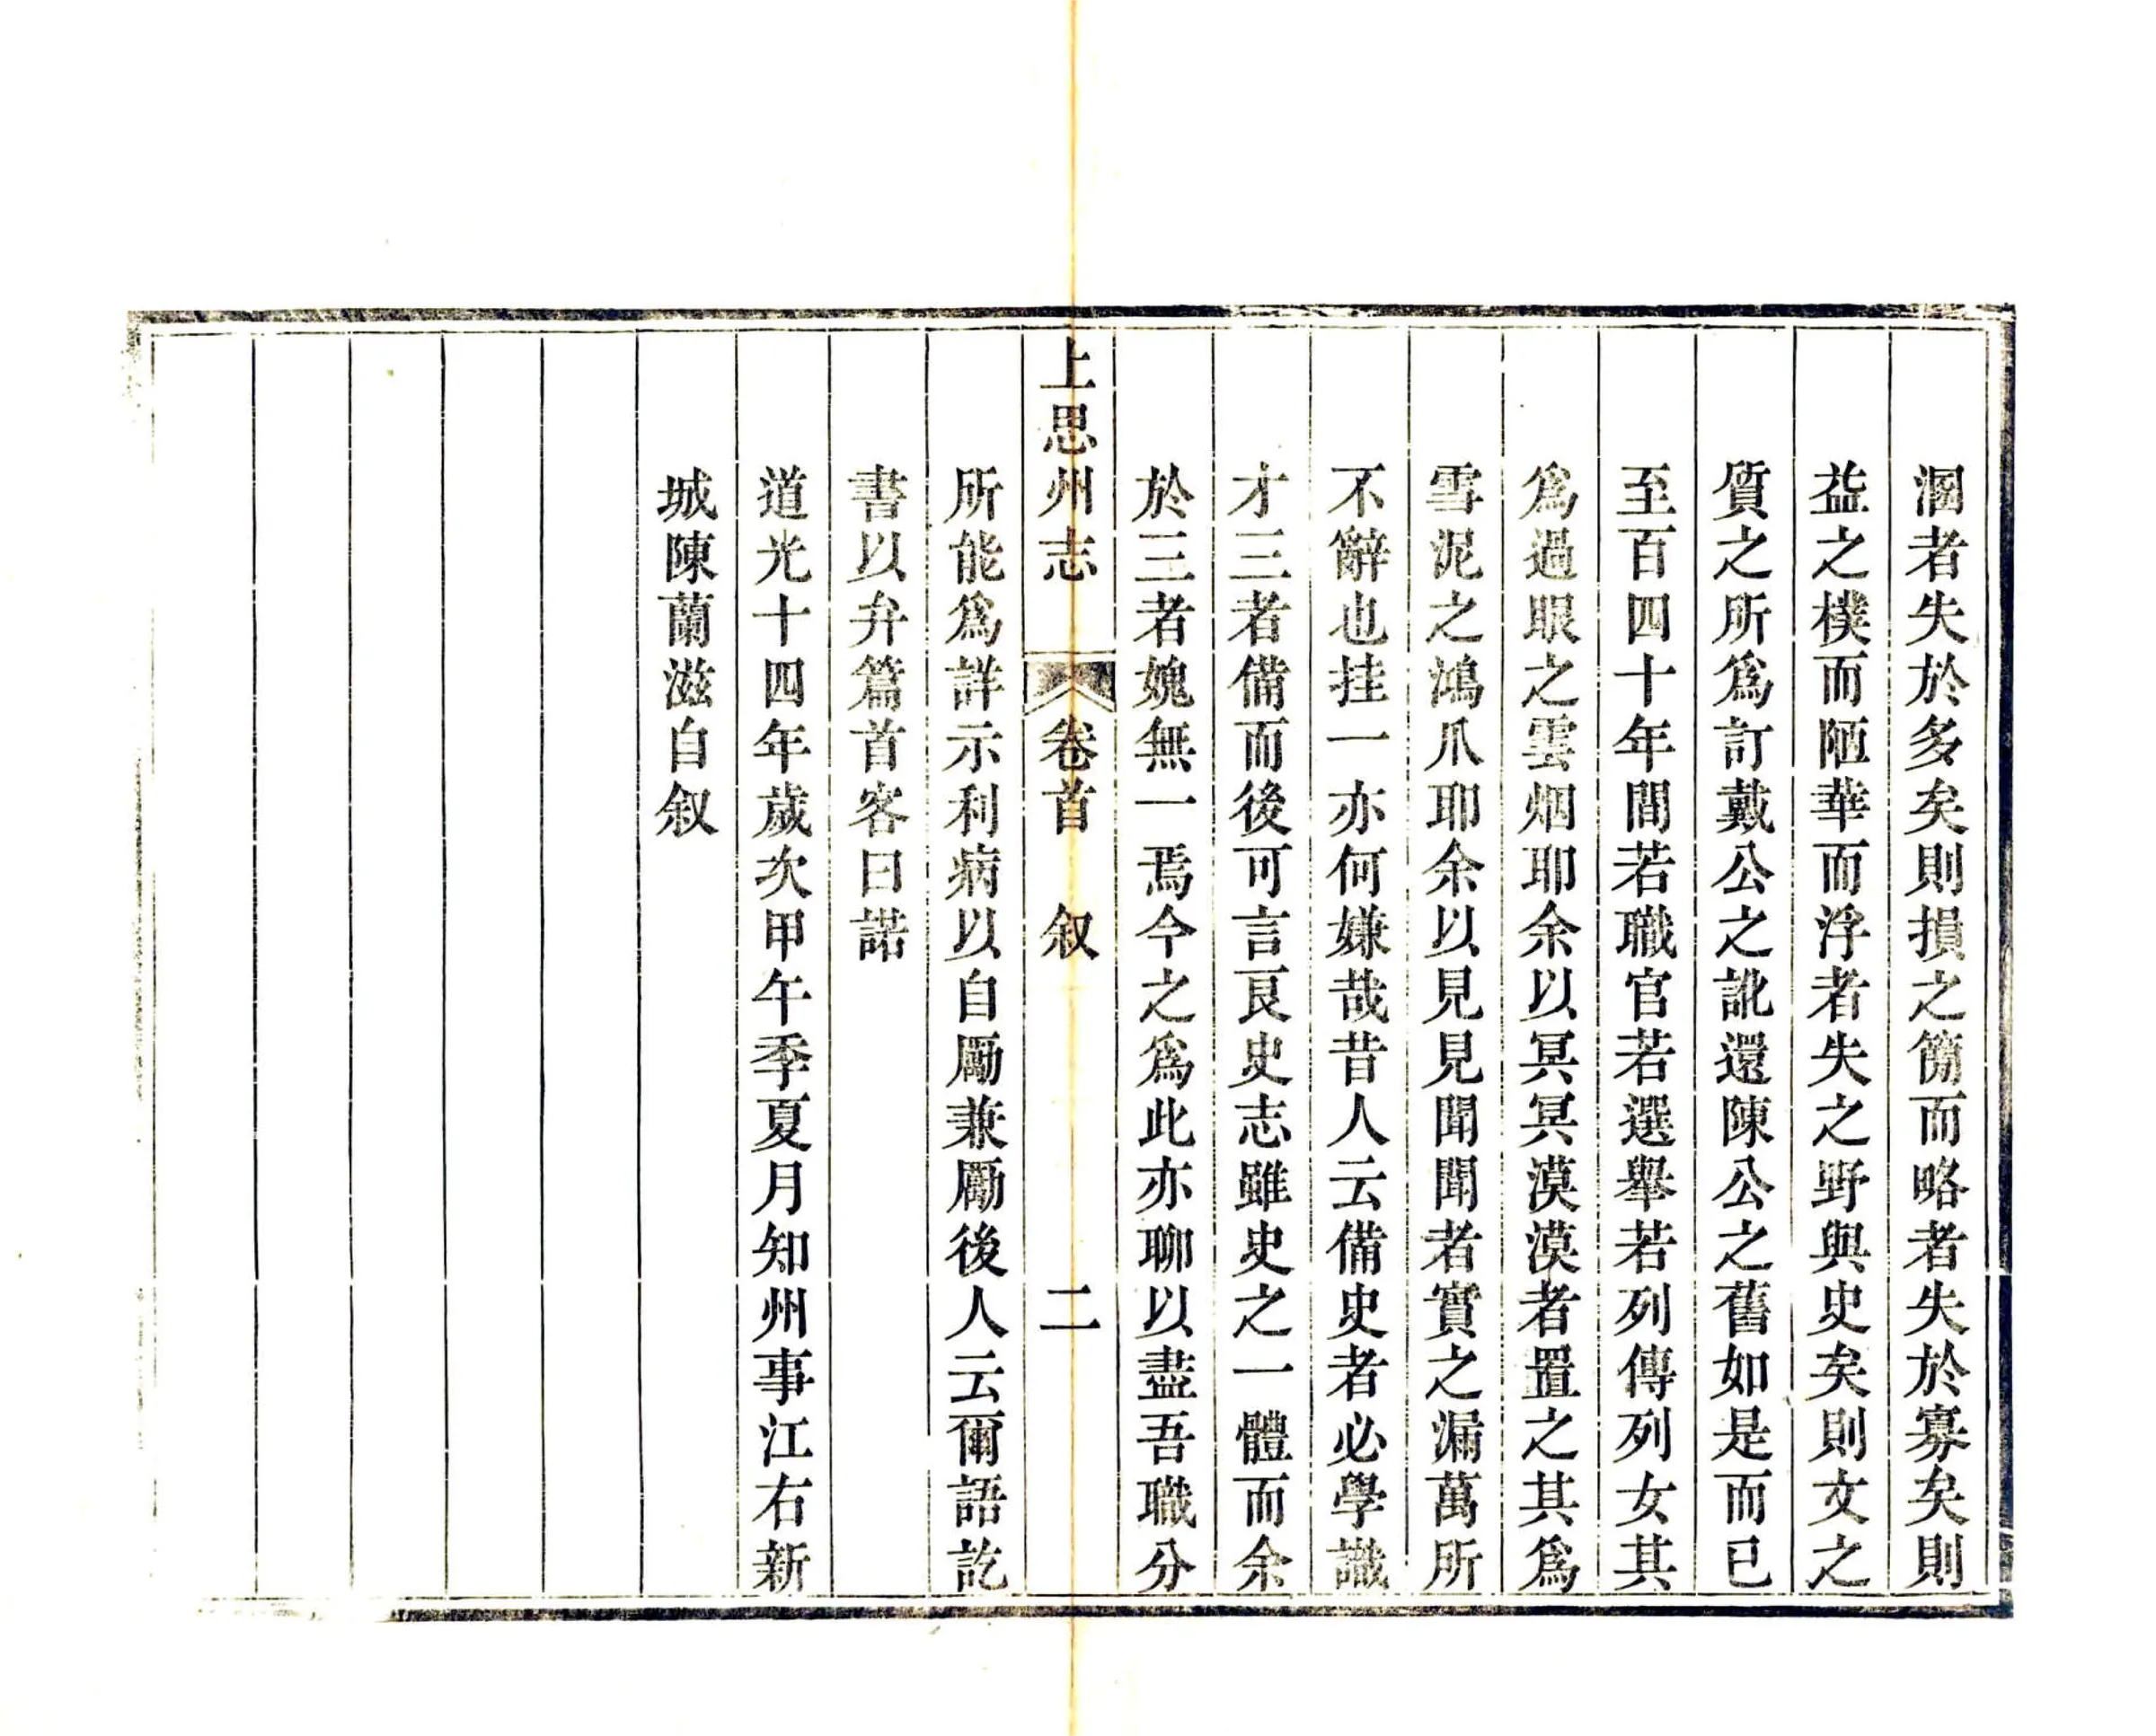 溷者失於多矣則損之簡而略者失於寡矣則
益之樸而陋華而浮者失之野與史矣則文之
質之所爲訂戴公之訛還陳公之舊如是而已
至百四十年間若職官若選舉若列傳列女其
爲過眼之雲烟耶余以冥冥漠漠者置之其爲
雪泥之鴻爪耶余以見見聞聞者實之漏萬所
不辭也挂一亦何嫌哉昔人云備史者必學識
才三者備而後可言良史志雖史之一體而余
於三者媿無一焉今之爲此亦聊以盡吾職分
上思州志 卷首 叙 二
所能爲詳示利病以自勵兼勵後人云爾語訖
書以弁篇首客曰諾
道光十四年歲次甲午季夏月知州事江右新
城陳蘭滋自叙